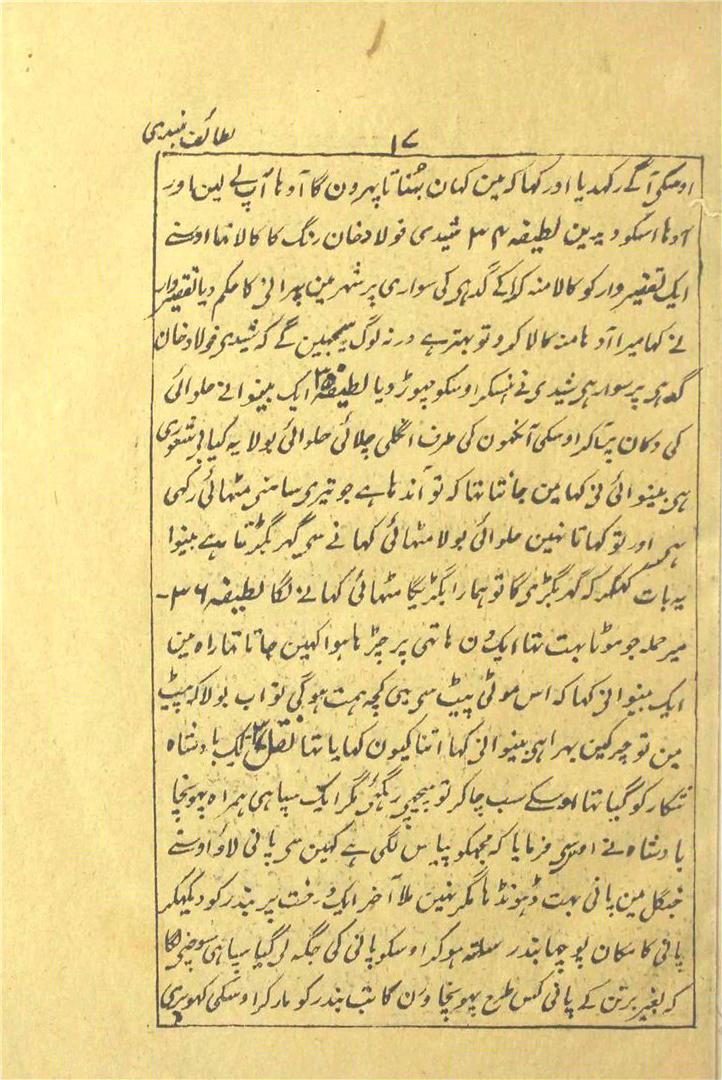 ۱۷ لطائف ہندی
اوسکی آگے رکھدیا اور کہا کہ مین کہان بُھناتا پہرون گا آدہا آپ لے لین اور
آدہا اسکو دیدین لطیفہ ۳۴ شیدی فولادخان رنگ کا کالا تہا اوسنے
ایک تقصیروار کو کالا منہ کراکے گدہی کی سواری پر شہر مین پہرانی کا حکم دیا تقصیروار
نے کہا میرا آدہا منہ کالا کرو تو بہتر ہے ورنہ لوگ سمجہین گے کہ شیدی فولادخان
گدہی پر سوار ہی شیدی نے ہنسکر اوسکو چہوڑ دیا لطیفہ ۳۵ ایک بینوا نے حلوائی
کی دکان پر آکر اوسکی آنکہون کی طرف انگلی چلائی حلوائی بولا یہ کیا بی شعوری
ہی بینوا نی کہا مین جانتا تہا کہ تو آندہا ہے جو تیری سامنی مٹہائی رکہی
ہی اور تو کہاتا نہین حلوائی بولا مٹہائی کہانے سی گہر بگڑتا ہے بینوا
یہ بات کہکر کہ گہر بگڑی گا تو ہمارا بگڑیگا مٹہائی کہانے لگا لطیفہ ۳۶-
میر جملہ جو موٹا بہت تہا ایک دن ہاتہی پر چڑہا ہوا کہین جاتا تہا راہ مین
ایک بینوا نی کہا کہ اس موٹی پیٹ سی بہی کچہ ہمت ہوگی نواب بولا کہ پیٹ
مین تو چرکین بہرا ہی بینوا نی کہا اتنا کیون کہایا تہا نقل ۳۷ ایک بادشاہ
شکار کو گیا تہا اوسکے سب چاکر تو پیچہی رہگئی مگر ایک سپاہی ہمراہ پہونچا
بادشاہ نے اوسی فرمایا کہ مجہکو پیاس لگی ہے کہین سی پانی لاؤ اوسنے
جنگل مین پانی بہت ڈہونڈہا مگر نہین ملا آخر ایک درخت پر بندر کو دیکہکر
پانی کا مکان پوچہا بندر ساتہ ہوکر اوسکو پانی کی جگہ لی گیا سپاہی سوچنی لگا
کہ بغیر برتن کے پانی کس طرح پہونچاون گا تب بندر کو مار کر اوسکی کہوپری